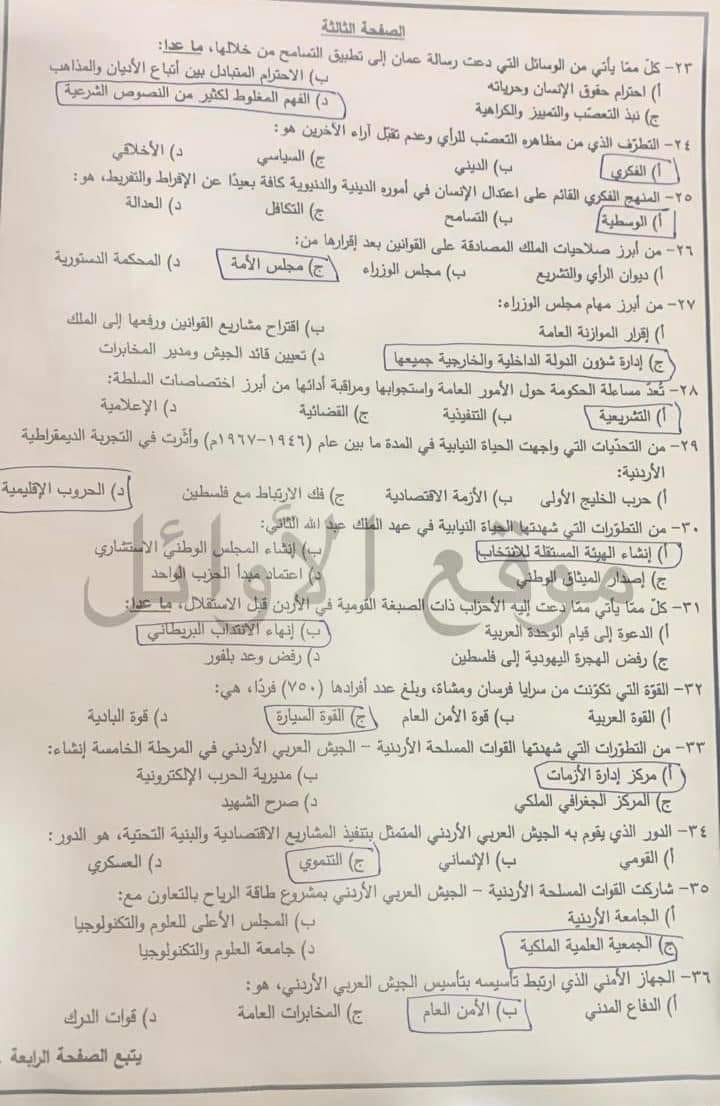 الصفحة الثالثة
٢٣- كلّ ممّا يأتي من الوسائل التي دعت رسالة عمان إلى تطبيق التسامح من خلالها، ما عدا:
أ) احترام حقوق الإنسان وحرياته ب) الاحترام المتبادل بين أتباع الأديان والمذاهب
ج) نبذ التعصّب والتمييز والكراهية د) الفهم المغلوط لكثير من النصوص الشرعية
٢٤- التطرّف الذي من مظاهره التعصّب للرأي وعدم تقبّل آراء الآخرين هو:
أ) الفكري ب) الديني ج) السياسي د) الأخلاقي
٢٥- المنهج الفكري القائم على اعتدال الإنسان في أموره الدينية والدنيوية كافة بعيدًا عن الإفراط والتفريط، هو:
أ) الوسطية ب) التسامح ج) التكافل د) العدالة
٢٦- من أبرز صلاحيات الملك المصادقة على القوانين بعد إقرارها من:
أ) ديوان الرأي والتشريع ب) مجلس الوزراء ج) مجلس الأمة د) المحكمة الدستورية
٢٧- من أبرز مهام مجلس الوزراء:
أ) إقرار الموازنة العامة ب) اقتراح مشاريع القوانين ورفعها إلى الملك
ج) إدارة شؤون الدولة الداخلية والخارجية جميعها د) تعيين قائد الجيش ومدير المخابرات
٢٨- تُعدّ مساءلة الحكومة حول الأمور العامة واستجوابها ومراقبة أدائها من أبرز اختصاصات السلطة:
أ) التشريعية ب) التنفيذية ج) القضائية د) الإعلامية
٢٩- من التحدّيات التي واجهت الحياة النيابية في المدة ما بين عام (١٩٤٦-١٩٦٧م) وأثّرت في التجربة الديمقراطية
الأردنية:
أ) حرب الخليج الأولى ب) الأزمة الاقتصادية ج) فك الارتباط مع فلسطين د) الحروب الإقليمية
موقع الأوائل
٣٠- من التطوّرات التي شهدتها الحياة النيابية في عهد الملك عبد الله الثاني:
أ) إنشاء الهيئة المستقلة للانتخاب ب) إنشاء المجلس الوطني الاستشاري
ج) إصدار الميثاق الوطني د) اعتماد مبدأ الحزب الواحد
٣١- كلّ ممّا يأتي ممّا دعت إليه الأحزاب ذات الصبغة القومية في الأردن قبل الاستقلال، ما عدا:
أ) الدعوة إلى قيام الوحدة العربية ب) إنهاء الانتداب البريطاني
ج) رفض الهجرة اليهودية إلى فلسطين د) رفض وعد بلفور
٣٢- القوّة التي تكوّنت من سرايا فرسان ومشاة، وبلغ عدد أفرادها (٧٥٠) فردًا، هي:
أ) القوة العربية ب) قوة الأمن العام ج) القوة السيارة د) قوة البادية
٣٣- من التطوّرات التي شهدتها القوات المسلحة الأردنية – الجيش العربي الأردني في المرحلة الخامسة إنشاء:
أ) مركز إدارة الأزمات ب) مديرية الحرب الإلكترونية
ج) المركز الجغرافي الملكي د) صرح الشهيد
٣٤- الدور الذي يقوم به الجيش العربي الأردني المتمثل بتنفيذ المشاريع الاقتصادية والبنية التحتية، هو الدور:
أ) القومي ب) الإنساني ج) التنموي د) العسكري
٣٥- شاركت القوات المسلحة الأردنية – الجيش العربي الأردني بمشروع طاقة الرياح بالتعاون مع:
أ) الجامعة الأردنية ب) المجلس الأعلى للعلوم والتكنولوجيا
ج) الجمعية العلمية الملكية د) جامعة العلوم والتكنولوجيا
٣٦- الجهاز الأمني الذي ارتبط تأسيسه بتأسيس الجيش العربي الأردني، هو:
أ) الدفاع المدني ب) الأمن العام ج) المخابرات العامة د) قوات الدرك
يتبع الصفحة الرابعة